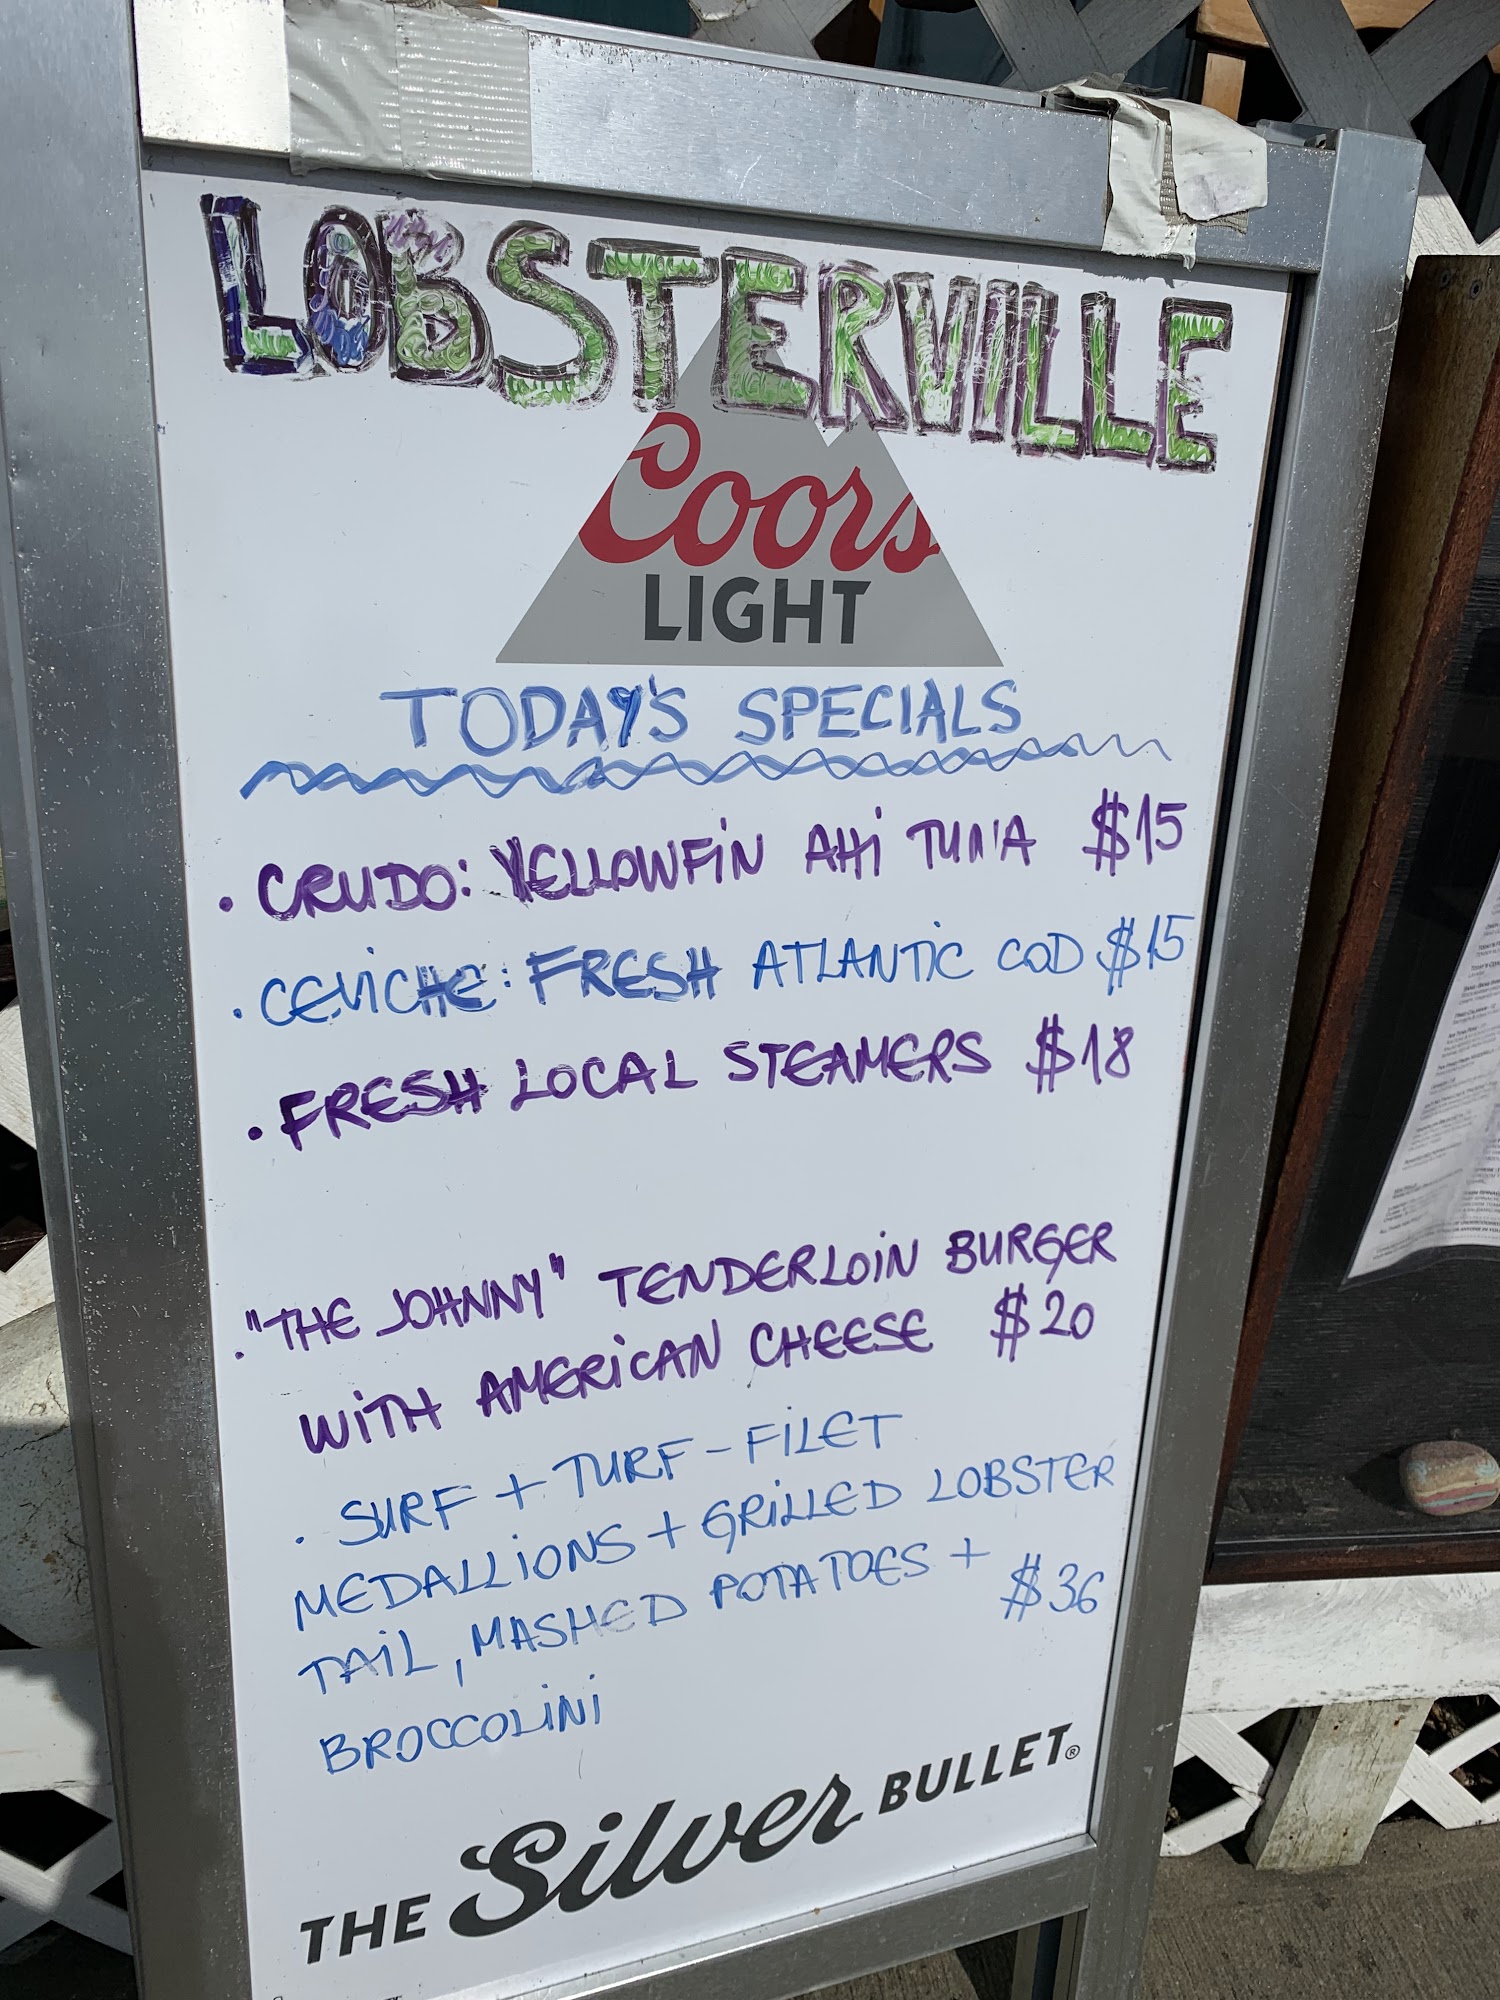 LOBSTERVILLE
Coors
LIGHT
TODAY'S SPECIALS
• CRUDO: YELLOWFIN AHI TUNA $15
• CEVICHE: FRESH ATLANTIC COD $15
• FRESH LOCAL STEAMERS $18
• "THE JOHNNY" TENDERLOIN BURGER
WITH AMERICAN CHEESE $20
• SURF + TURF - FILET
MEDALLIONS + GRILLED LOBSTER
TAIL, MASHED POTATOES + $36
BROCCOLINI
THE Silver BULLET®